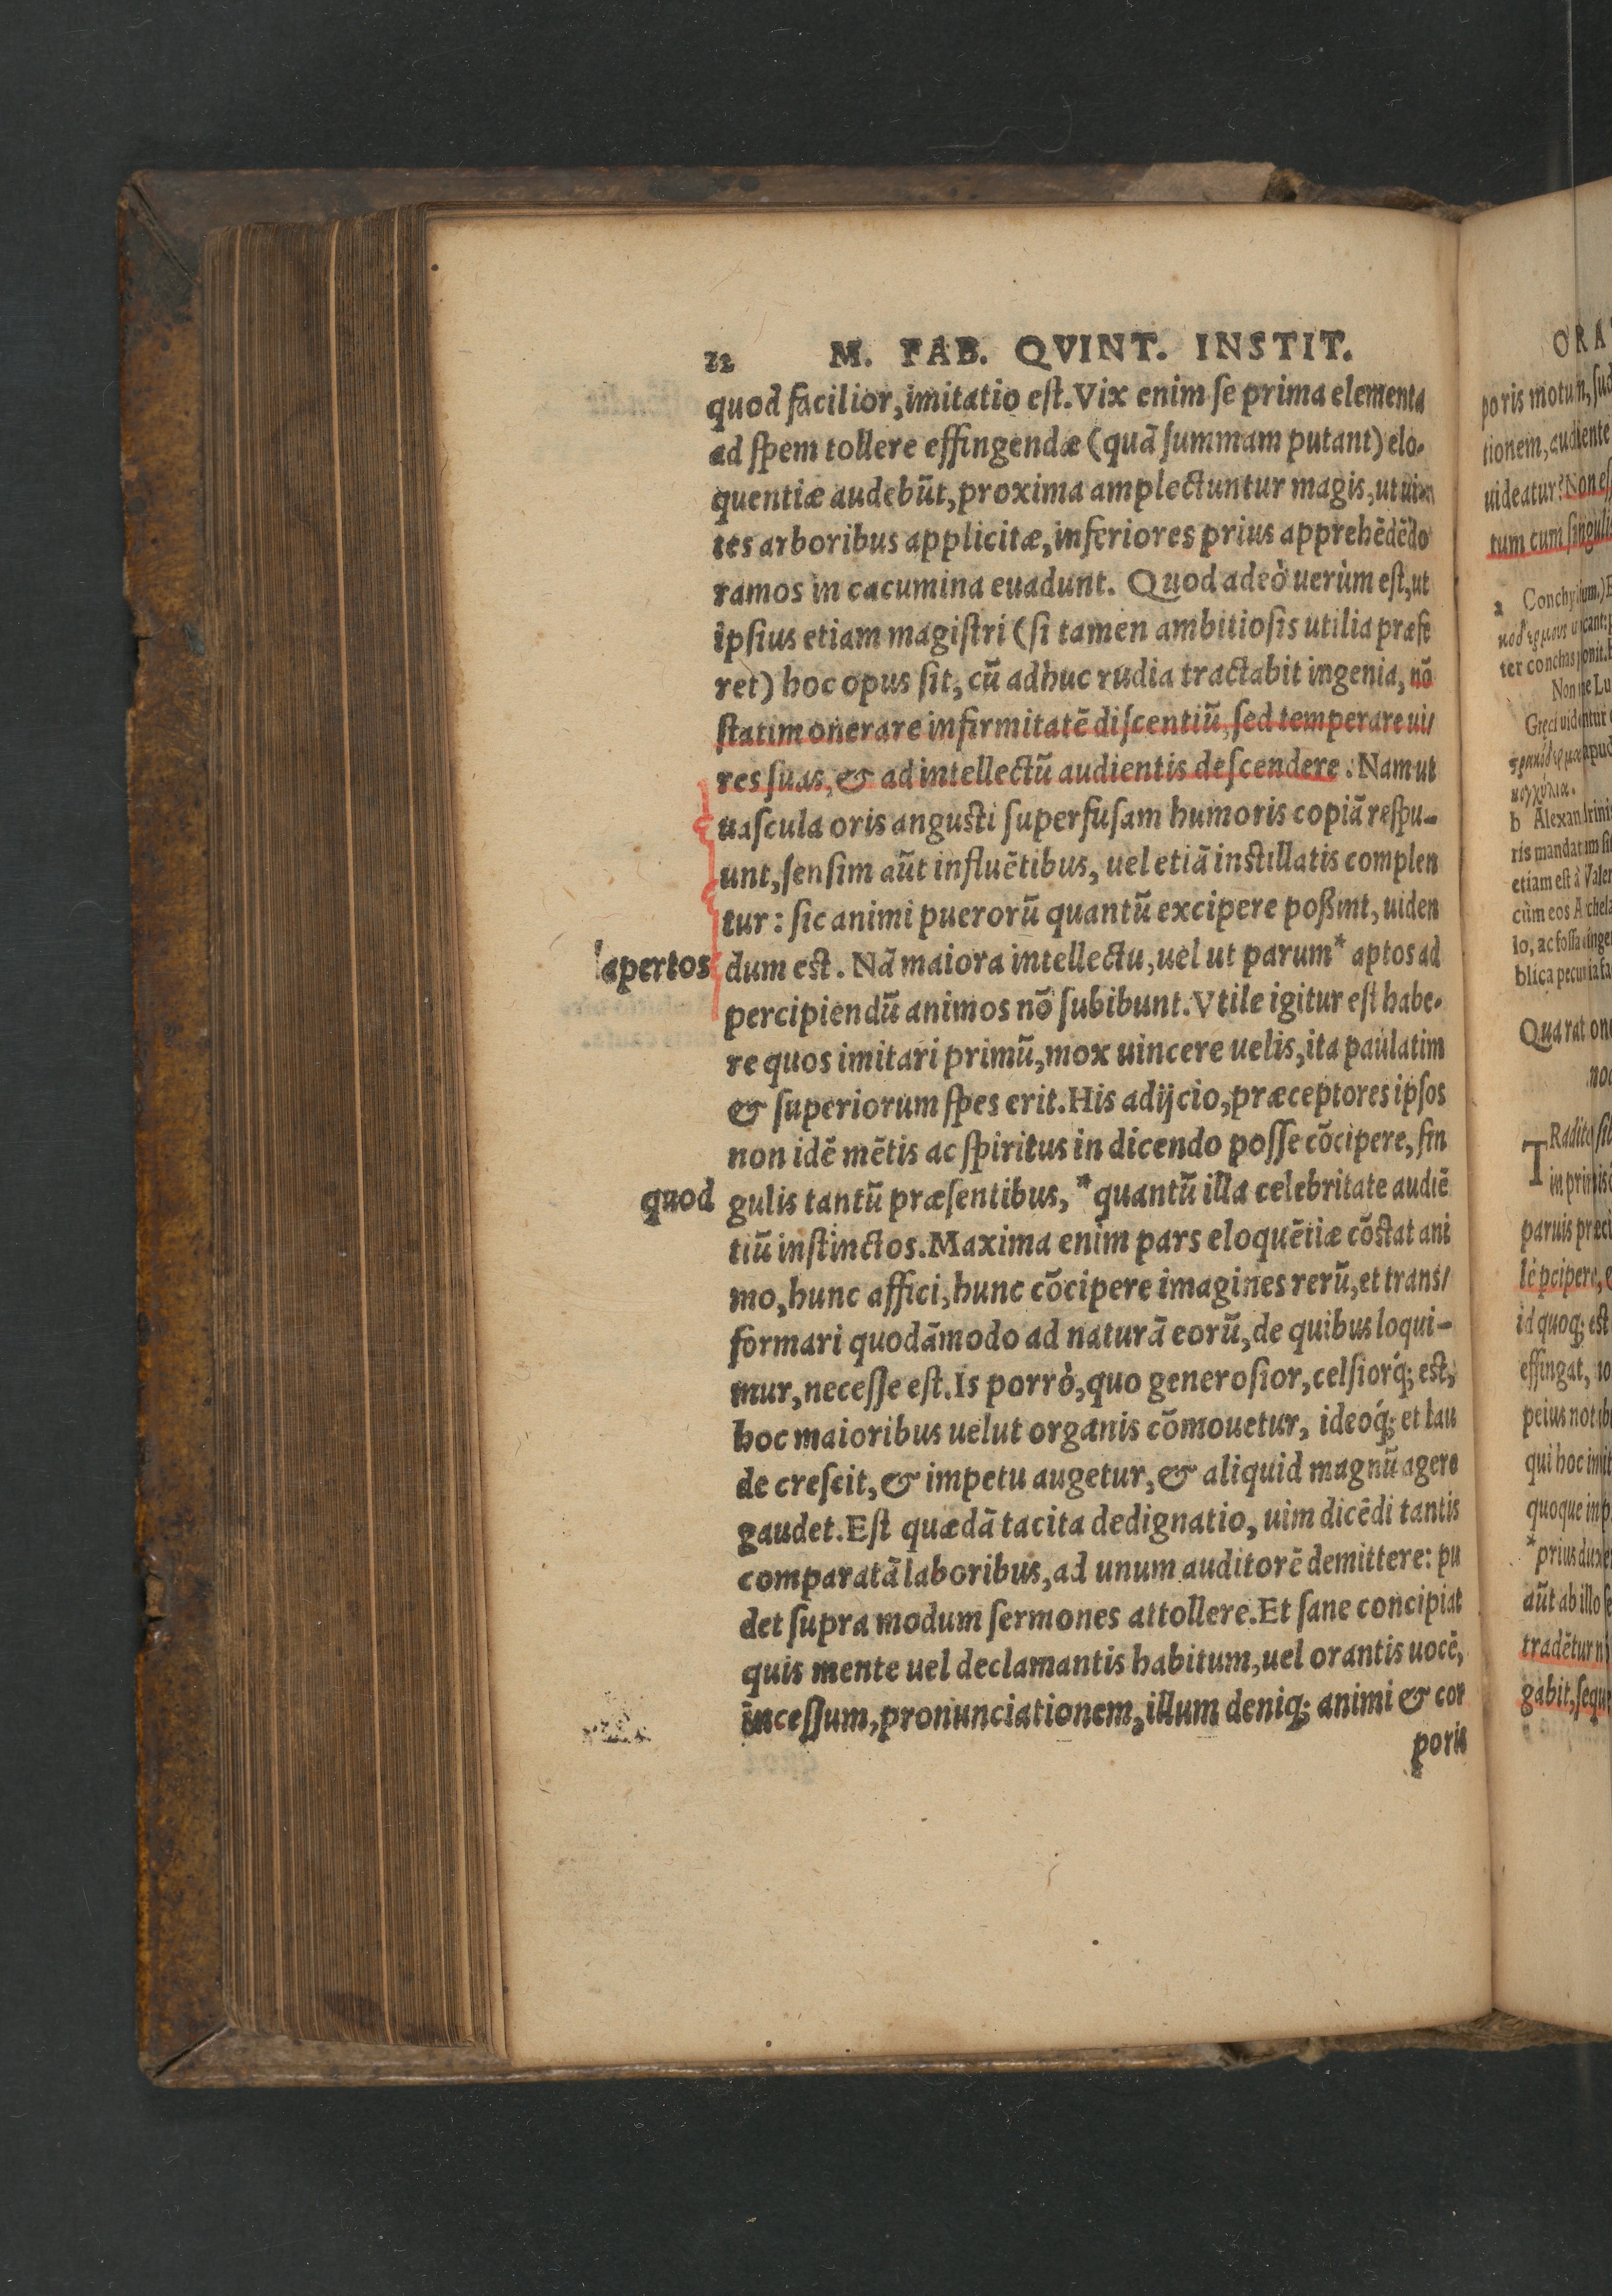 22 M. FAB. QVINT. INSTIT.
quod facilior, imitatio eſt. Vix enim ſe prima elementa
ad ſpem tollere effingendæ (quã ſummam putant) elo-
quentiæ audebũt, proxima amplectuntur magis, ut uin
tes arboribus applicitæ, inferiores prius apprehēdēdo
ramos in cacumina euadunt. Quod adeò uerùm eſt, ut
ipſius etiam magiſtri (ſi tamen ambitioſis utilia præfe
ret) hoc opus ſit, cũ adhuc rudia tractabit ingenia, nõ
ſtatim onerare infirmitatē diſcentiũ, ſed temperare ui/
res ſuas, & ad intellectũ audientis deſcendere. Nam ut
uaſcula oris anguſti ſuperfuſam humoris copiã reſpu-
unt, ſenſim aũt influētibus, uel etiã inſtillatis complen
tur: ſic animi puerorũ quantũ excipere poßint, uiden
apertos
dum eſt. Nã maiora intellectu, uel ut parum* aptos ad
percipiendũ animos nõ ſubibunt. Vtile igitur eſt habe-
re quos imitari primũ, mox uincere uelis, ita paulatim
& ſuperiorum ſpes erit. His adijcio, præceptores ipſos
non idē mētis ac ſpiritus in dicendo poſſe cõcipere, ſin
quod
gulis tantũ præſentibus, *quantũ illa celebritate audiē
tiũ inſtinctos. Maxima enim pars eloquētiæ cõſtat ani
mo, hunc affici, hunc cõcipere imagines rerũ, et tranſ/
formari quodãmodo ad naturã eorũ, de quibus loqui-
mur, neceſſe eſt. Is porrò, quo generoſior, celſiorq́; eſt,
hoc maioribus uelut organis cõmouetur, ideoq́; et lau
de creſcit, & impetu augetur, & aliquid magnũ agere
gaudet. Eſt quædã tacita dedignatio, uim dicēdi tantis
comparatã laboribus, ad unum auditorē demittere: pu
det ſupra modum ſermones attollere. Et ſane concipiat
quis mente uel declamantis habitum, uel orantis uocē,
inceſſum, pronunciationem, illum deniq; animi & cor
poris
ORA
poris motum,
tionem, audiente
uideatur? Non eſſ
tum cum ſingulis
a Conchylium.)
ter conchas ponit.
Græci uidentur
b Alexandrini
ris mandatum
etiam eſt à Valer
cùm eos Archela
lo, ac foſſa
blica pecunia
Qua rat
TRadito
in primis
paruis præci
lē pcipere,
id quoq; eſt
effingat,
peius
qui hoc
quoque in p
*prius
aũt ab illo
tradētur
gabit,